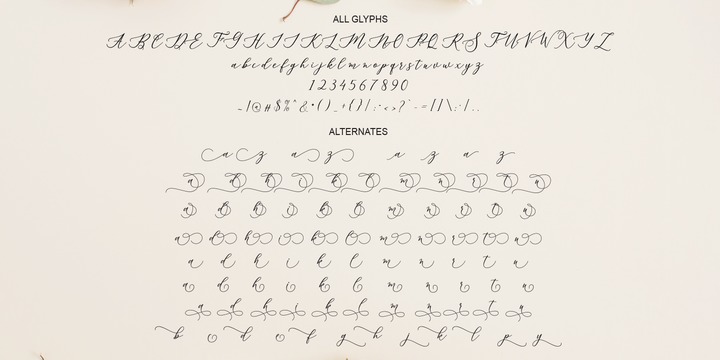 ALL GLYPHS
A B C D E F G H I J K L M N O P Q R S T U V W X Y Z
a b c d e f g h i j k l m n o p q r s t u v w x y z
1 2 3 4 5 6 7 8 9 0
ALTERNATES
a z a z a z a z
a d h i k l m n r t u
a d h i k l m n r t u
a d h i k l m n r t u
a d h i k l m n r t u
a d h i k l m n r t u
a d h i k l m n r t u
b o d o f g h j k l p y